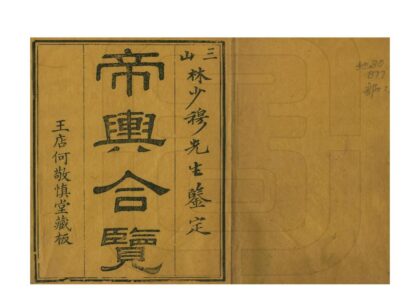 三山林少穆先生鑒定
帝輿合覽
王店何敬慎堂藏板